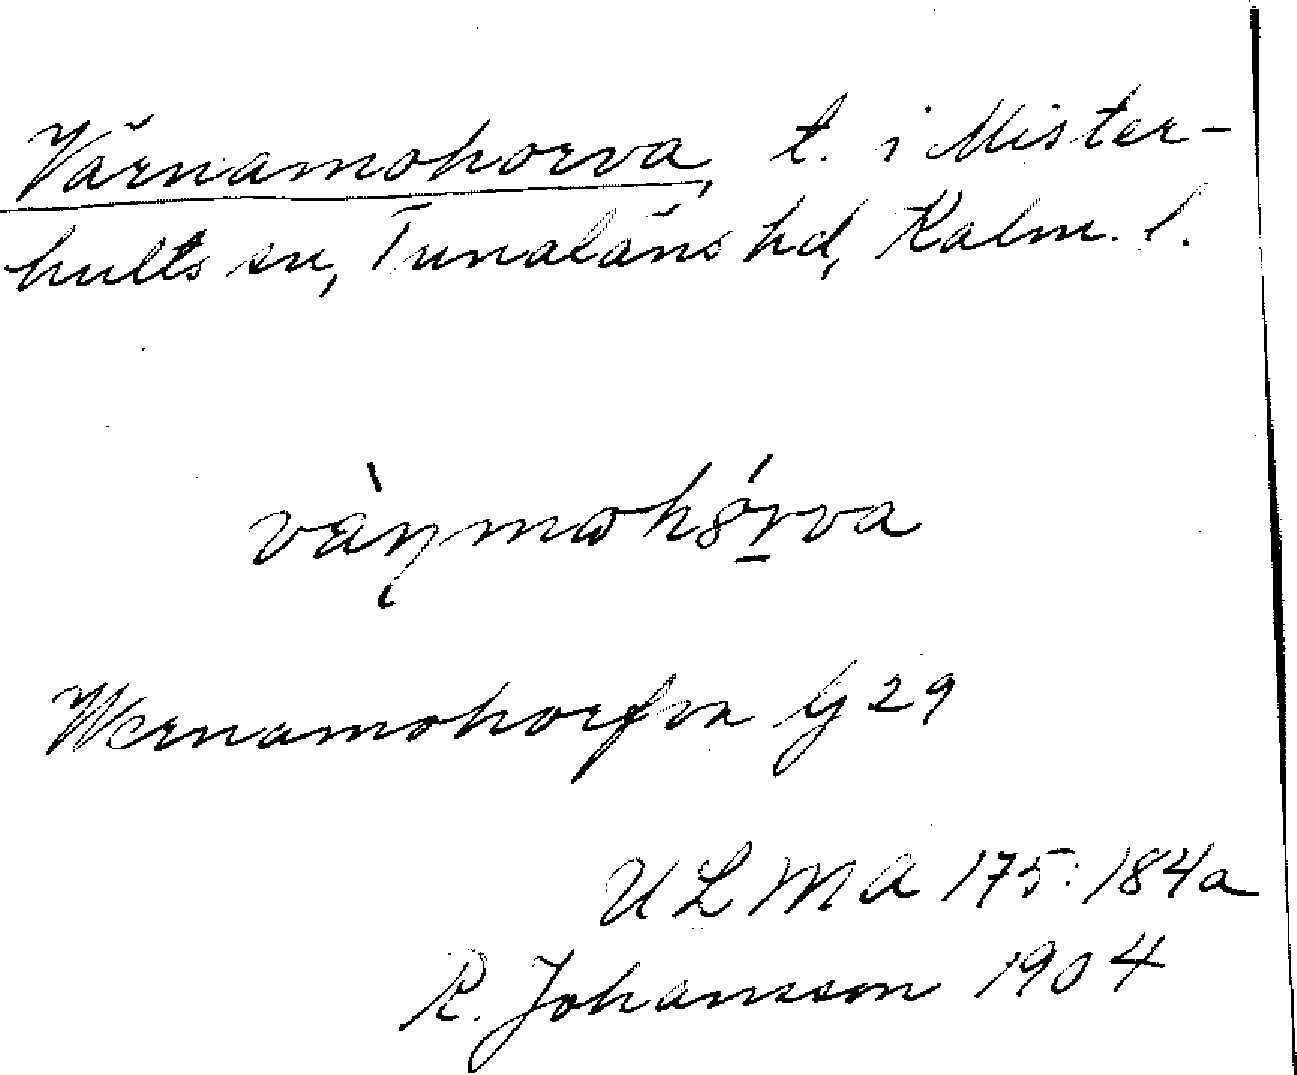 Värnamohorva, t. i Mister-
hults sn, Tunaläns hd, Kalm. l.
Wernamohorfva G 29
ULMA 175:184a
R. Johansson 1904